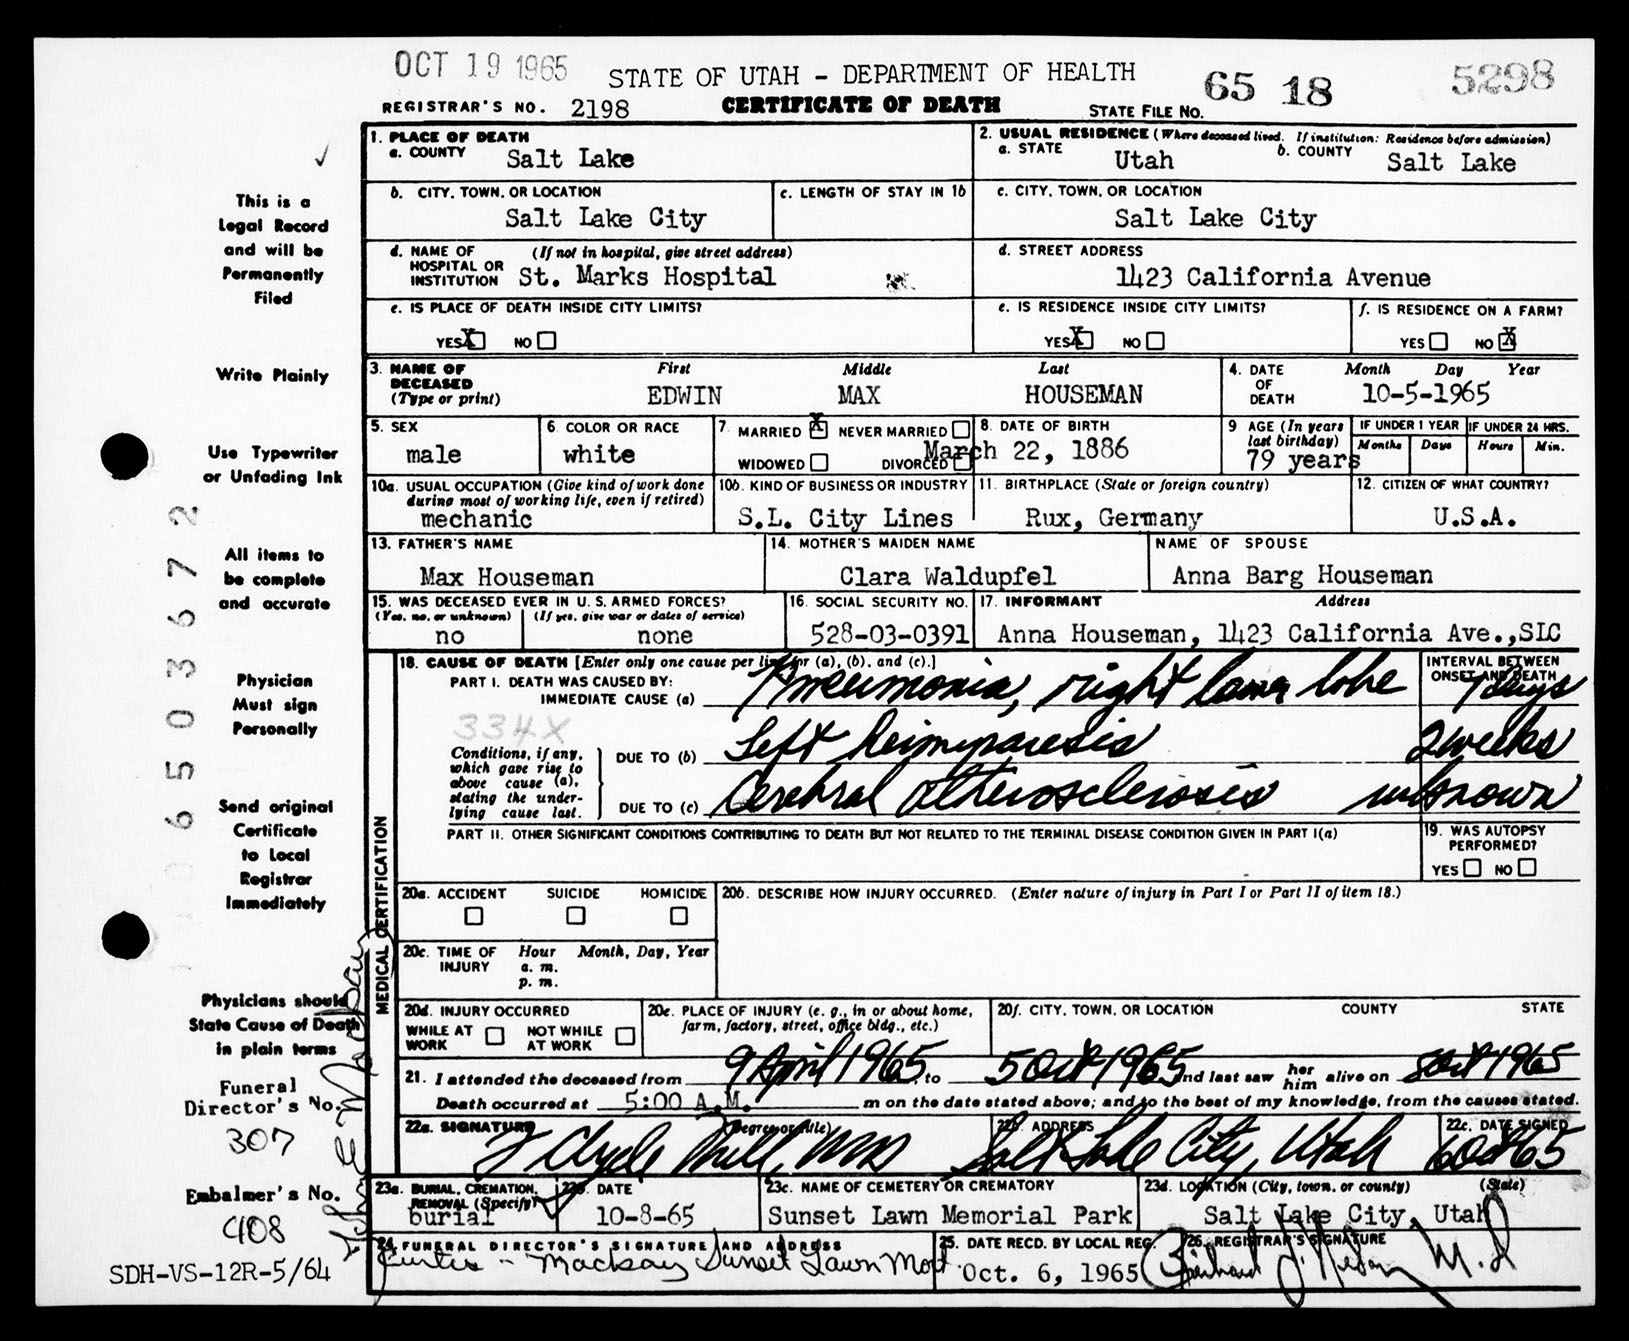 OCT 19 1965
STATE OF UTAH - DEPARTMENT OF HEALTH
65 18 5298
REGISTRAR'S NO. 2198 CERTIFICATE OF DEATH STATE FILE NO.
1. PLACE OF DEATH
a. COUNTY Salt Lake
2. USUAL RESIDENCE (Where deceased lived. If institution: Residence before admission)
a. STATE Utah b. COUNTY Salt Lake
b. CITY, TOWN, OR LOCATION Salt Lake City
c. LENGTH OF STAY IN 1b
c. CITY, TOWN, OR LOCATION Salt Lake City
d. NAME OF HOSPITAL OR INSTITUTION (If not in hospital, give street address) St. Marks Hospital
d. STREET ADDRESS 1423 California Avenue
e. IS PLACE OF DEATH INSIDE CITY LIMITS?
YES X NO
e. IS RESIDENCE INSIDE CITY LIMITS?
YES X NO
f. IS RESIDENCE ON A FARM?
YES NO X
3. NAME OF DECEASED (Type or print)
First Middle Last
EDWIN MAX HOUSEMAN
4. DATE OF DEATH Month Day Year
10-5-1965
5. SEX male
6. COLOR OR RACE white
7. MARRIED X NEVER MARRIED
WIDOWED DIVORCED
8. DATE OF BIRTH March 22, 1886
9 AGE (In years last birthday) 79 years
IF UNDER 1 YEAR Months Days
IF UNDER 24 HRS. Hours Min.
10a. USUAL OCCUPATION (Give kind of work done during most of working life, even if retired) mechanic
10b. KIND OF BUSINESS OR INDUSTRY S.L. City Lines
11. BIRTHPLACE (State or foreign country) Rux, Germany
12. CITIZEN OF WHAT COUNTRY? U.S.A.
13. FATHER'S NAME Max Houseman
14. MOTHER'S MAIDEN NAME Clara Waldupfel
NAME OF SPOUSE Anna Barg Houseman
15. WAS DECEASED EVER IN U. S. ARMED FORCES?
(Yes, no, or unknown) (If yes, give war or dates of service)
no none
16. SOCIAL SECURITY NO. 528-03-0391
17. INFORMANT Address
Anna Houseman, 1423 California Ave.,SLC
18. CAUSE OF DEATH [Enter only one cause per line for (a), (b), and (c).]
PART I. DEATH WAS CAUSED BY:
IMMEDIATE CAUSE (a) Pneumonia, right lower lobe
INTERVAL BETWEEN ONSET AND DEATH
7 days
334X
Conditions, if any, which gave rise to above cause (a), stating the underlying cause last.
DUE TO (b) Left hemiparesis 2 weeks
DUE TO (c) Cerebral atherosclerosis unknown
PART II. OTHER SIGNIFICANT CONDITIONS CONTRIBUTING TO DEATH BUT NOT RELATED TO THE TERMINAL DISEASE CONDITION GIVEN IN PART I(a)
19. WAS AUTOPSY PERFORMED?
YES NO
20a. ACCIDENT SUICIDE HOMICIDE
20b. DESCRIBE HOW INJURY OCCURRED. (Enter nature of injury in Part I or Part II of item 18.)
20c. TIME OF INJURY Hour a. m. p. m. Month, Day, Year
20d. INJURY OCCURRED
WHILE AT WORK NOT WHILE AT WORK
20e. PLACE OF INJURY (e. g., in or about home, farm, factory, street, office bldg., etc.)
20f. CITY, TOWN, OR LOCATION COUNTY STATE
21. I attended the deceased from 9 April 1965, to 5 Oct 1965 and last saw her him alive on 5 Oct 1965
Death occurred at 5:00 A.M. m on the date stated above; and to the best of my knowledge, from the causes stated.
22a. SIGNATURE (Degree or title) Clyde MD
22b. ADDRESS Salt Lake City, Utah
22c. DATE SIGNED 6 Oct 65
23a. BURIAL, CREMATION, REMOVAL (Specify) burial
23b. DATE 10-8-65
23c. NAME OF CEMETERY OR CREMATORY Sunset Lawn Memorial Park
23d. LOCATION (City, town, or county) (State) Salt Lake City, Utah
24. FUNERAL DIRECTOR'S SIGNATURE AND ADDRESS
Curtis - Mackay Sunset Lawn Mort.
25. DATE RECD. BY LOCAL REG. Oct. 6, 1965
26. REGISTRAR'S SIGNATURE
M.D
MEDICAL CERTIFICATION
This is a
Legal Record
and will be
Permanently
Filed
Write Plainly
Use Typewriter
or Unfading Ink
All items to
be complete
and accurate
Physician
Must sign
Personally
Send original
Certificate
to Local
Registrar
Immediately
Physicians should
State Cause of Death
in plain terms
Funeral
Director's No.
307
Embalmer's No.
408
SDH-VS-12R-5/64
6503672